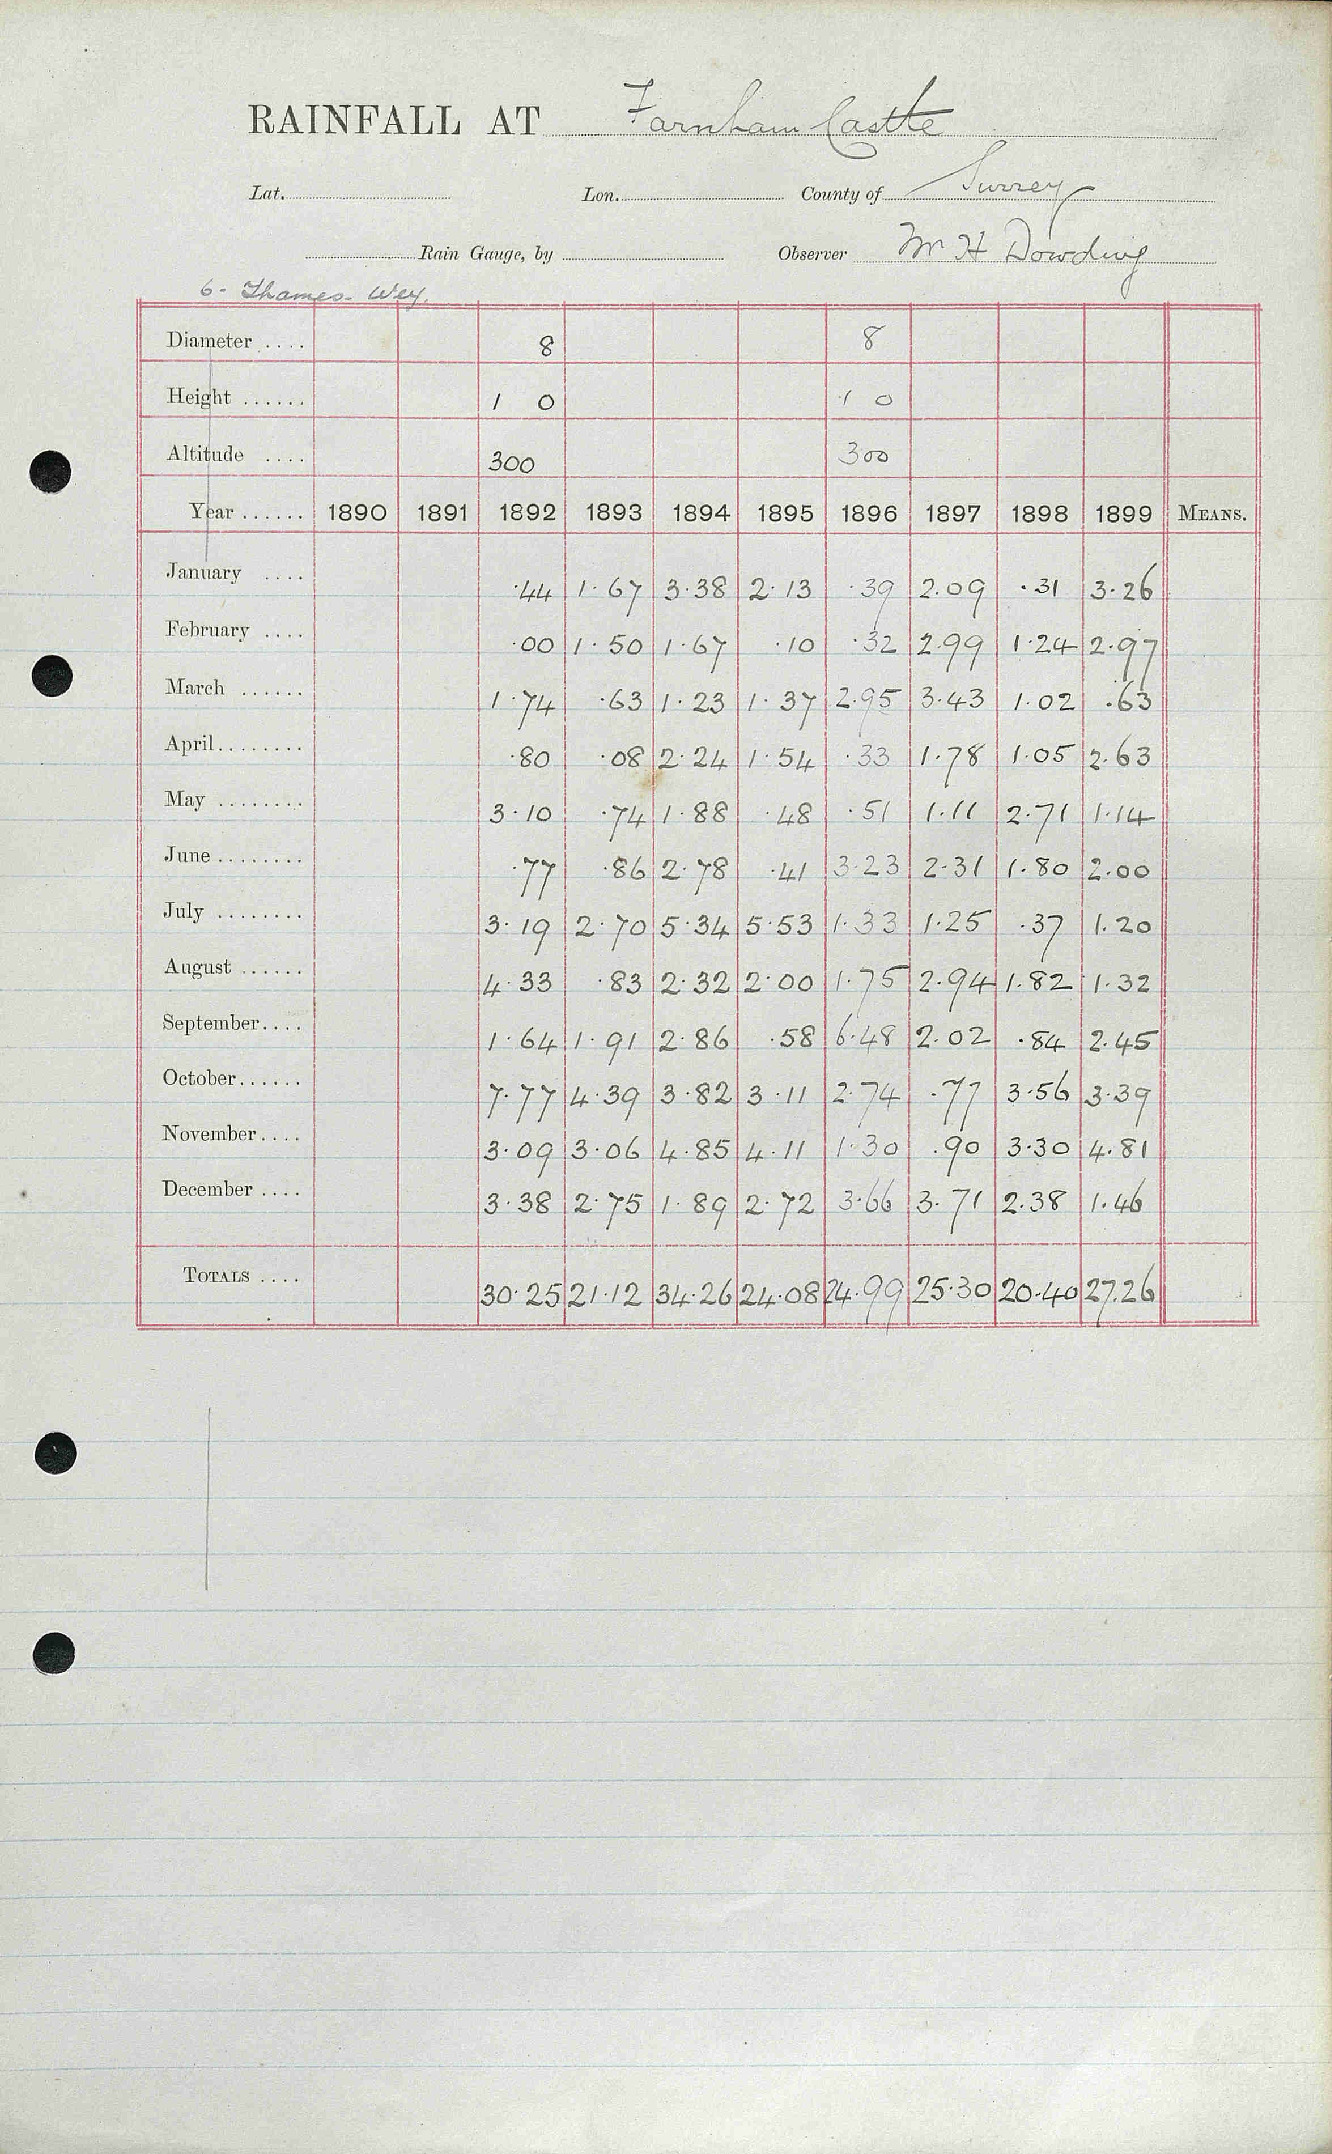 RAINFALL AT Farnham Castle
Lat. Lon. County of Surrey
Rain Gauge, by Observer Mr H Dowding
6- Thames- Wey.
Diameter .... 8 8
Height ...... 1 0 1 0
Altitude .... 300 300
Year ...... 1890 1891 1892 1893 1894 1895 1896 1897 1898 1899 MEANS.
January .... .44 1.67 3.38 2.13 .39 2.09 .31 3.26
February .... .00 1.50 1.67 .10 .32 2.99 1.24 2.97
March ...... 1.74 .63 1.23 1.37 2.95 3.43 1.02 .63
April........ .80 .08 2.24 1.54 .33 1.78 1.05 2.63
May ........ 3.10 .74 1.88 .48 .51 1.11 2.71 1.14
June........ .77 .86 2.78 .41 3.23 2.31 1.80 2.00
July ........ 3.19 2.70 5.34 5.53 1.33 1.25 .37 1.20
August ...... 4.33 .83 2.32 2.00 1.75 2.94 1.82 1.32
September.... 1.64 1.91 2.86 .58 6.48 2.02 .84 2.45
October...... 7.77 4.39 3.82 3.11 2.74 .77 3.56 3.39
November.... 3.09 3.06 4.85 4.11 1.30 .90 3.30 4.81
December .... 3.38 2.75 1.89 2.72 3.66 3.71 2.38 1.46
TOTALS .... 30.25 21.12 34.26 24.08 24.99 25.30 20.40 27.26